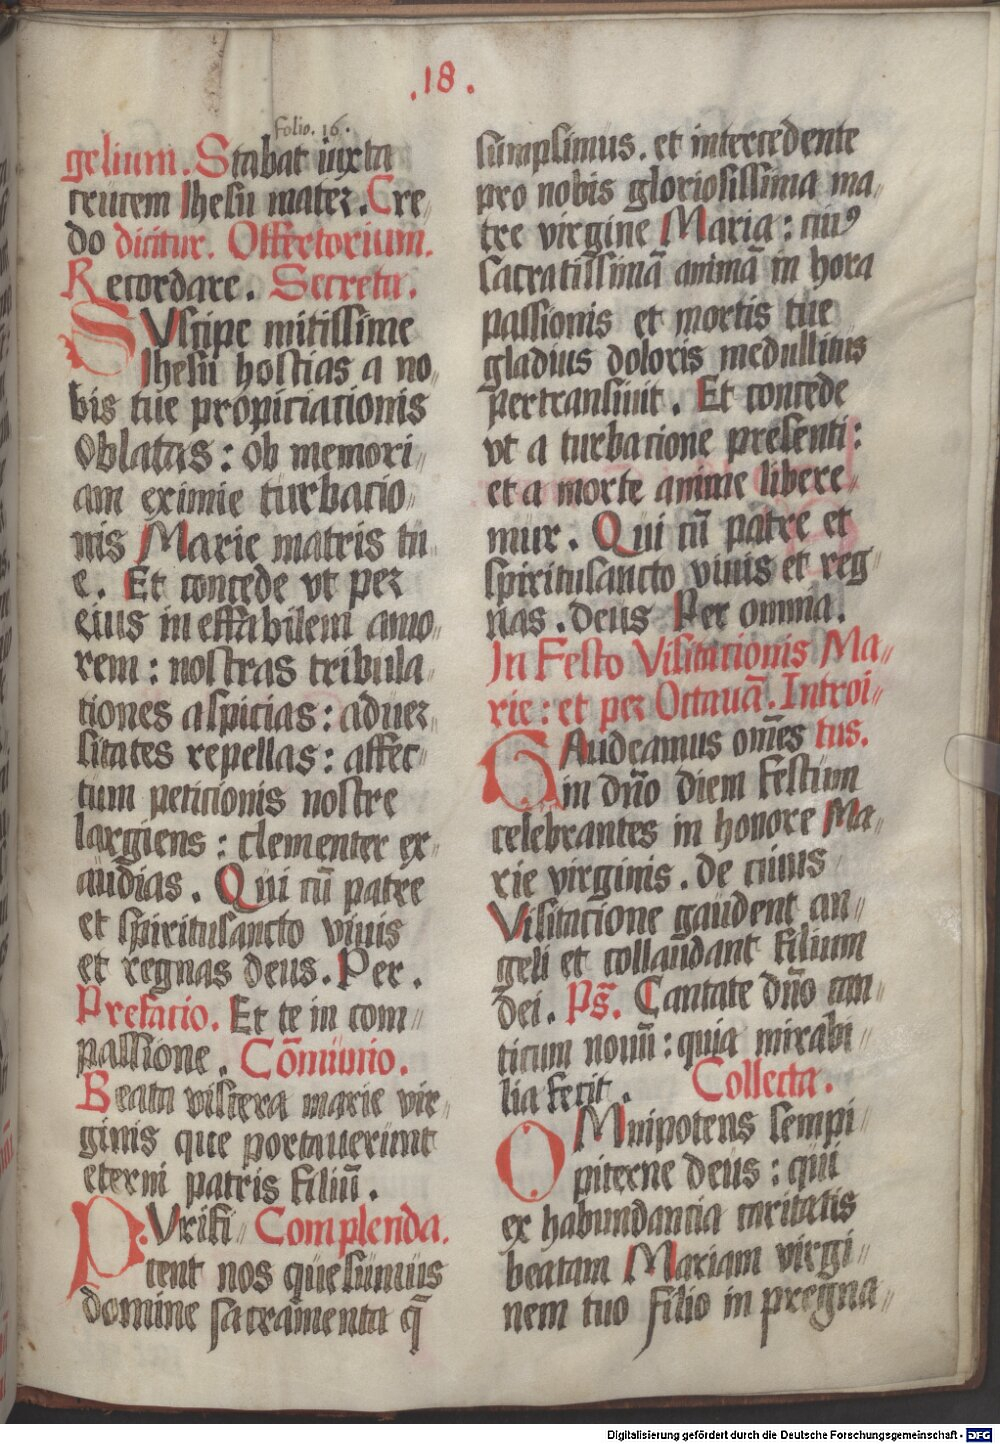 .18.
folio. 16.
gelium. Stabat iuxta
crucem Ihesu mater. Cre-
do dicitur. Offertorium.
Recordare. Secreta.
SUscipe mitissime
Ihesu hostias a no-
bis tue propiciacionis
oblatas: ob memori-
am eximie turbacio-
nis Marie matris tu-
e. Et concede vt per
eius ineffabilem amo-
rem: nostras tribula-
tiones aspicias: aduer-
sitates repellas: affec-
tum peticionis nostre
largiens: clementer ex-
audias. Qui cū patre
et spiritusancto viuis
et regnas deus. Per.
Prefacio. Et te in com-
passione. Cōmunio.
Beata viscera marie vir-
ginis que portauerunt
eterni patris filiū.
PUrifi- Complenda.
cent nos quesumus
domine sacramenta q̄
sumpsimus. et intercedente
pro nobis gloriosissima ma-
tre virgine Maria: cuiꝰ
sacratissimā animā in hora
passionis et mortis tue
gladius doloris medullitus
pertransiuit. Et concede
vt a turbacione presenti:
et a morte anime libere-
mur. Qui cū patre et
spiritusancto viuis et reg-
nas. deus Per omnia.
In Festo Visitacionis Ma-
rie: et per Octauā. Introi-
GAudeamus om̄es tus.
in dn̄o diem festum
celebrantes in honore Ma-
rie virginis. de cuius
Visitacione gaudent an-
geli et collaudant filium
dei. Ps̄. Cantate dn̄o can-
ticum nouū: quia mirabi-
lia fecit. Collecta.
OMnipotens sempi-
piterne deus: qui
ex habundancia caritatis
beatam Mariam virgi-
nem tuo filio inpregna-
Digitalisierung gefördert durch die Deutsche Forschungsgemeinschaft - DFG